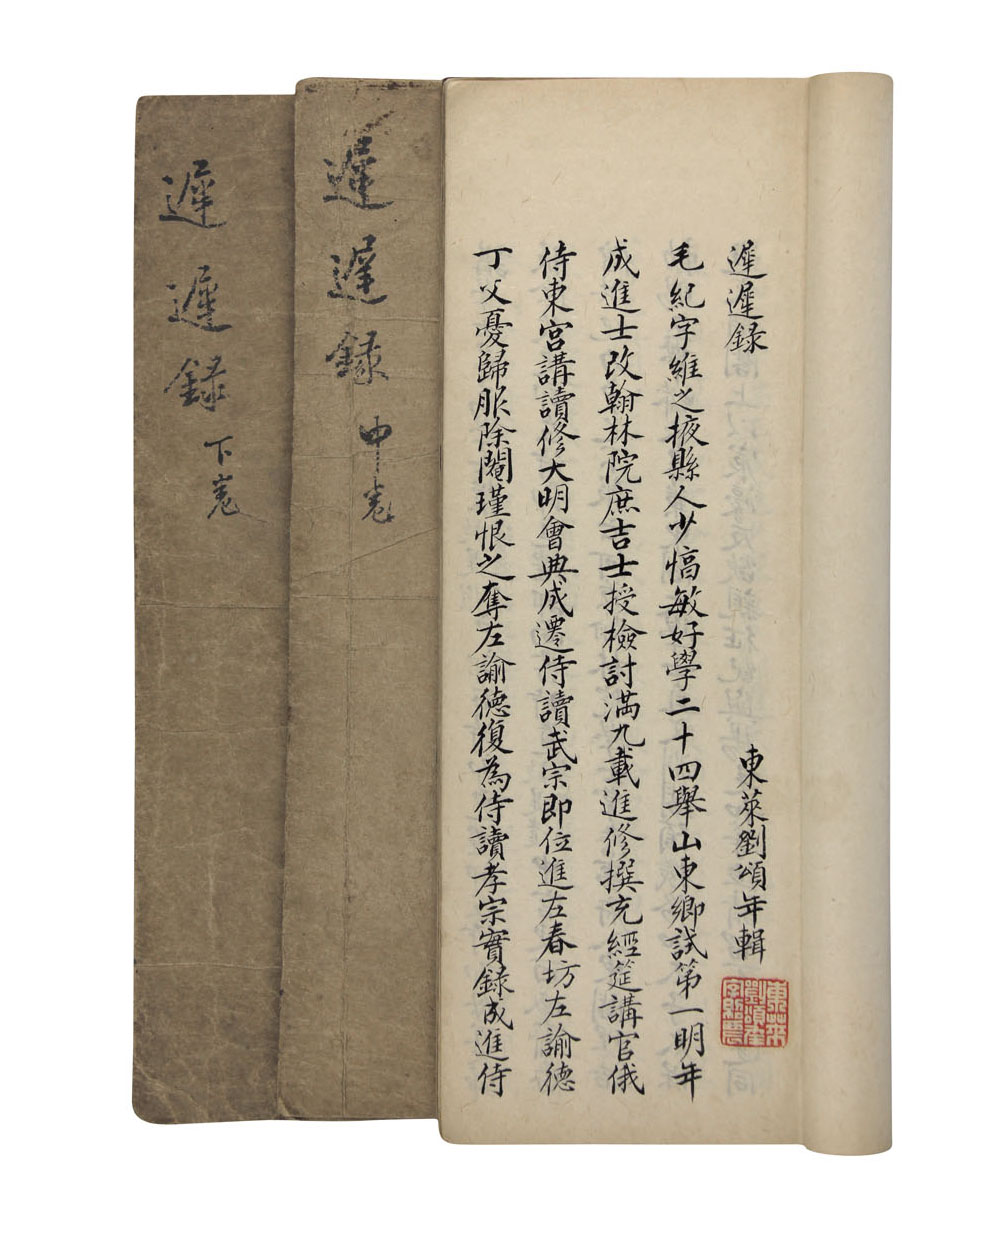 遲遲錄
東萊劉頌年輯
東萊
劉頌年
毛紀字維之掖縣人少敏好學二十四舉山東鄉試第一明年
成進士改翰林院庶吉士授檢討滿九載進修撰充經筵講官俄
侍東宮講讀修大明會典成遷侍讀武宗即位進左春坊左諭德
丁父憂歸服除閹瑾恨之奪左諭德復為侍讀孝宗實錄成進侍
遲遲錄 中卷
遲遲錄 下卷